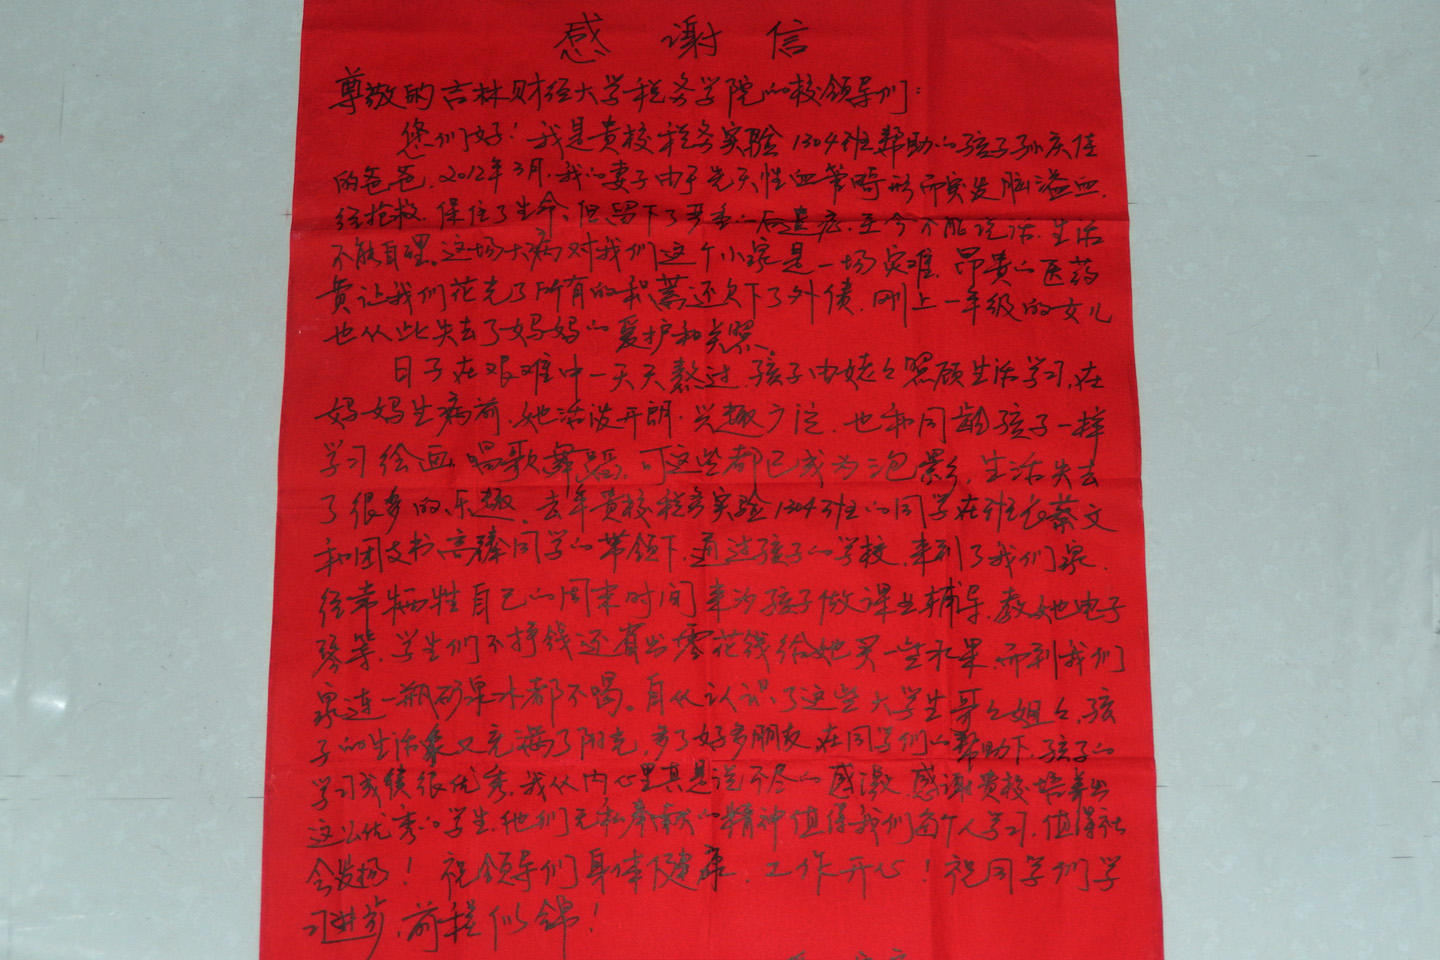 感谢信
尊敬的吉林财经大学税务学院的校领导们：
您们好！我是贵校税务实验1304班帮助的孩子孙庆佳
的爸爸，2012年3月，我的妻子由于先天性血管畸形而突发脑溢血，
经抢救，保住了生命，但留下了严重的后遗症，至今不能说话，生活
不能自理。这场大病对我们这个小家是一场灾难，昂贵的医药
费让我们花光了所有的积蓄还欠下了外债，刚上一年级的女儿
也从此失去了妈妈的爱护和关照。
日子在艰难中一天天熬过，孩子由姥姥照顾生活学习，在
妈妈生病前，她活泼开朗，兴趣广泛，也和同龄孩子一样
学习绘画、唱歌、舞蹈，可这些都已成为泡影，生活失去
了很多的乐趣。去年贵校税务实验1304班的同学在班长蔡文
和团支书高臻同学的带领下，通过孩子的学校，来到了我们家，
经常牺牲自己的周末时间来为孩子做课业辅导、教她电子
琴等，学生们不挣钱还省出零花钱给她买一些水果，而到我们
家连一瓶矿泉水都不喝。自从认识了这些大学生哥哥姐姐，孩
子的生活象又充满了阳光，多了好多朋友，在同学们的帮助下，孩子的
学习成绩很优秀，我从内心里真是说不尽的感激，感谢贵校培养出
这么优秀的学生，他们无私奉献的精神值得我们每个人学习，值得社
会发扬！祝领导们身体健康，工作开心！祝同学们学
习进步，前程似锦！